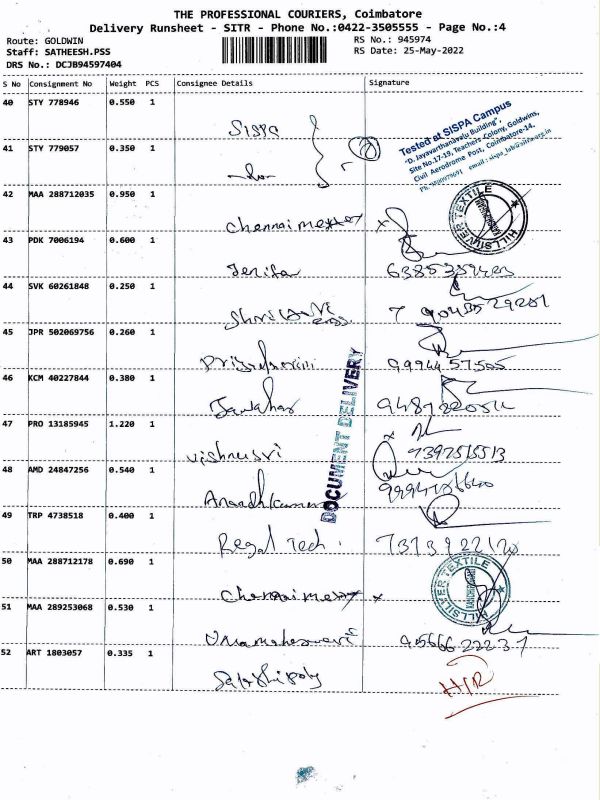 THE PROFESSIONAL COURIERS, Coimbatore
Delivery Runsheet - SITR - Phone No.:0422-3505555 - Page No.:4
Route: GOLDWIN
RS No.: 945974
Staff: SATHEESH.PSS
RS Date: 25-May-2022
DRS No.: DCJB94597404
S No Consignment No Weight PCS Consignee Details Signature
40 STY 778946 0.550 1
Sispa
Tested at SISPA Campus
"D. Jayavarthanavelu Building",
Site No.17-19, Teachers Colony, Goldwins,
Civil Aerodrome Post, Coimbatore-14.
41 STY 779057 0.350 1
-do-
42 MAA 288712035 0.950 1
Chennai
HILLSILVER TEXTILE
43 PDK 7006194 0.600 1
Jenifa
44 SVK 60261848 0.250 1
45 JPR 502069756 0.260 1
99944 57505
46 KCM 40227844 0.380 1
Jawahar
47 PRO 13185945 1.220 1
Vishnusri
7397515513
DOCUMENT DELIVERY
48 AMD 24847256 0.540 1
49 TRP 4738518 0.400 1
Regal Tech.
50 MAA 288712178 0.690 1
Chennai
HILLSILVER TEXTILE
51 MAA 289253068 0.530 1
Umamaheswari
95666 22237
52 ART 1803057 0.335 1